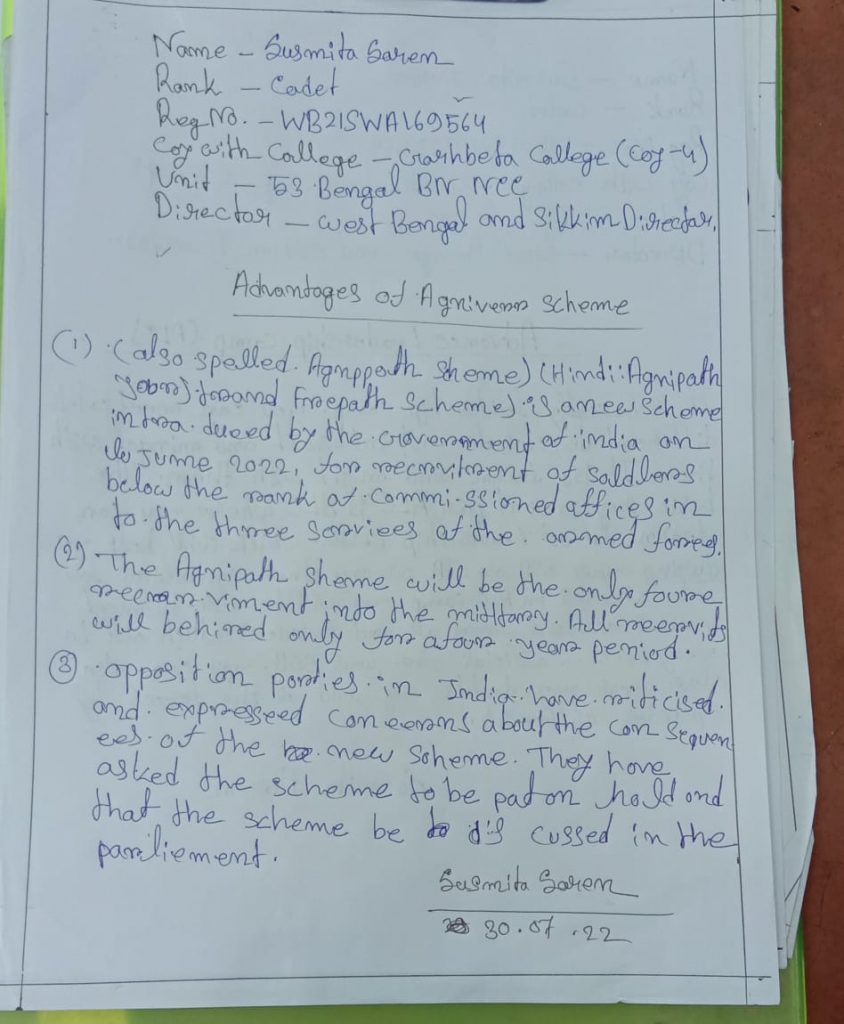 Name - Susmita Saren
Rank - Cadet
Reg No. - WB21SWA169564
Coy with College - Garhbeta College (Coy-4)
Unit - 53 Bengal BN NCC
Director - West Bengal and Sikkim Director.
Advantages of Agniveer Scheme
(1) (also spelled. Agnppath Sheme) (Hindi: Agnipath
and Freepath Scheme) is a new Scheme
intro. duced by the Government of india on
June 2022, for recruitment of soldlers
below the rank of commi-ssioned offices in
to the three services of the. armed forces.
(2) The Agnipath Sheme will be the only foure
into the milttary. All recruits
will behired only for afour year period.
(3) opposition parties in India have criticised.
and. expresseed concerns about the con sequen
ces of the new Scheme. They have
asked the scheme to be pat on hold and
that the scheme be dis cussed in the
parliement.
Susmita Saren
30.07.22